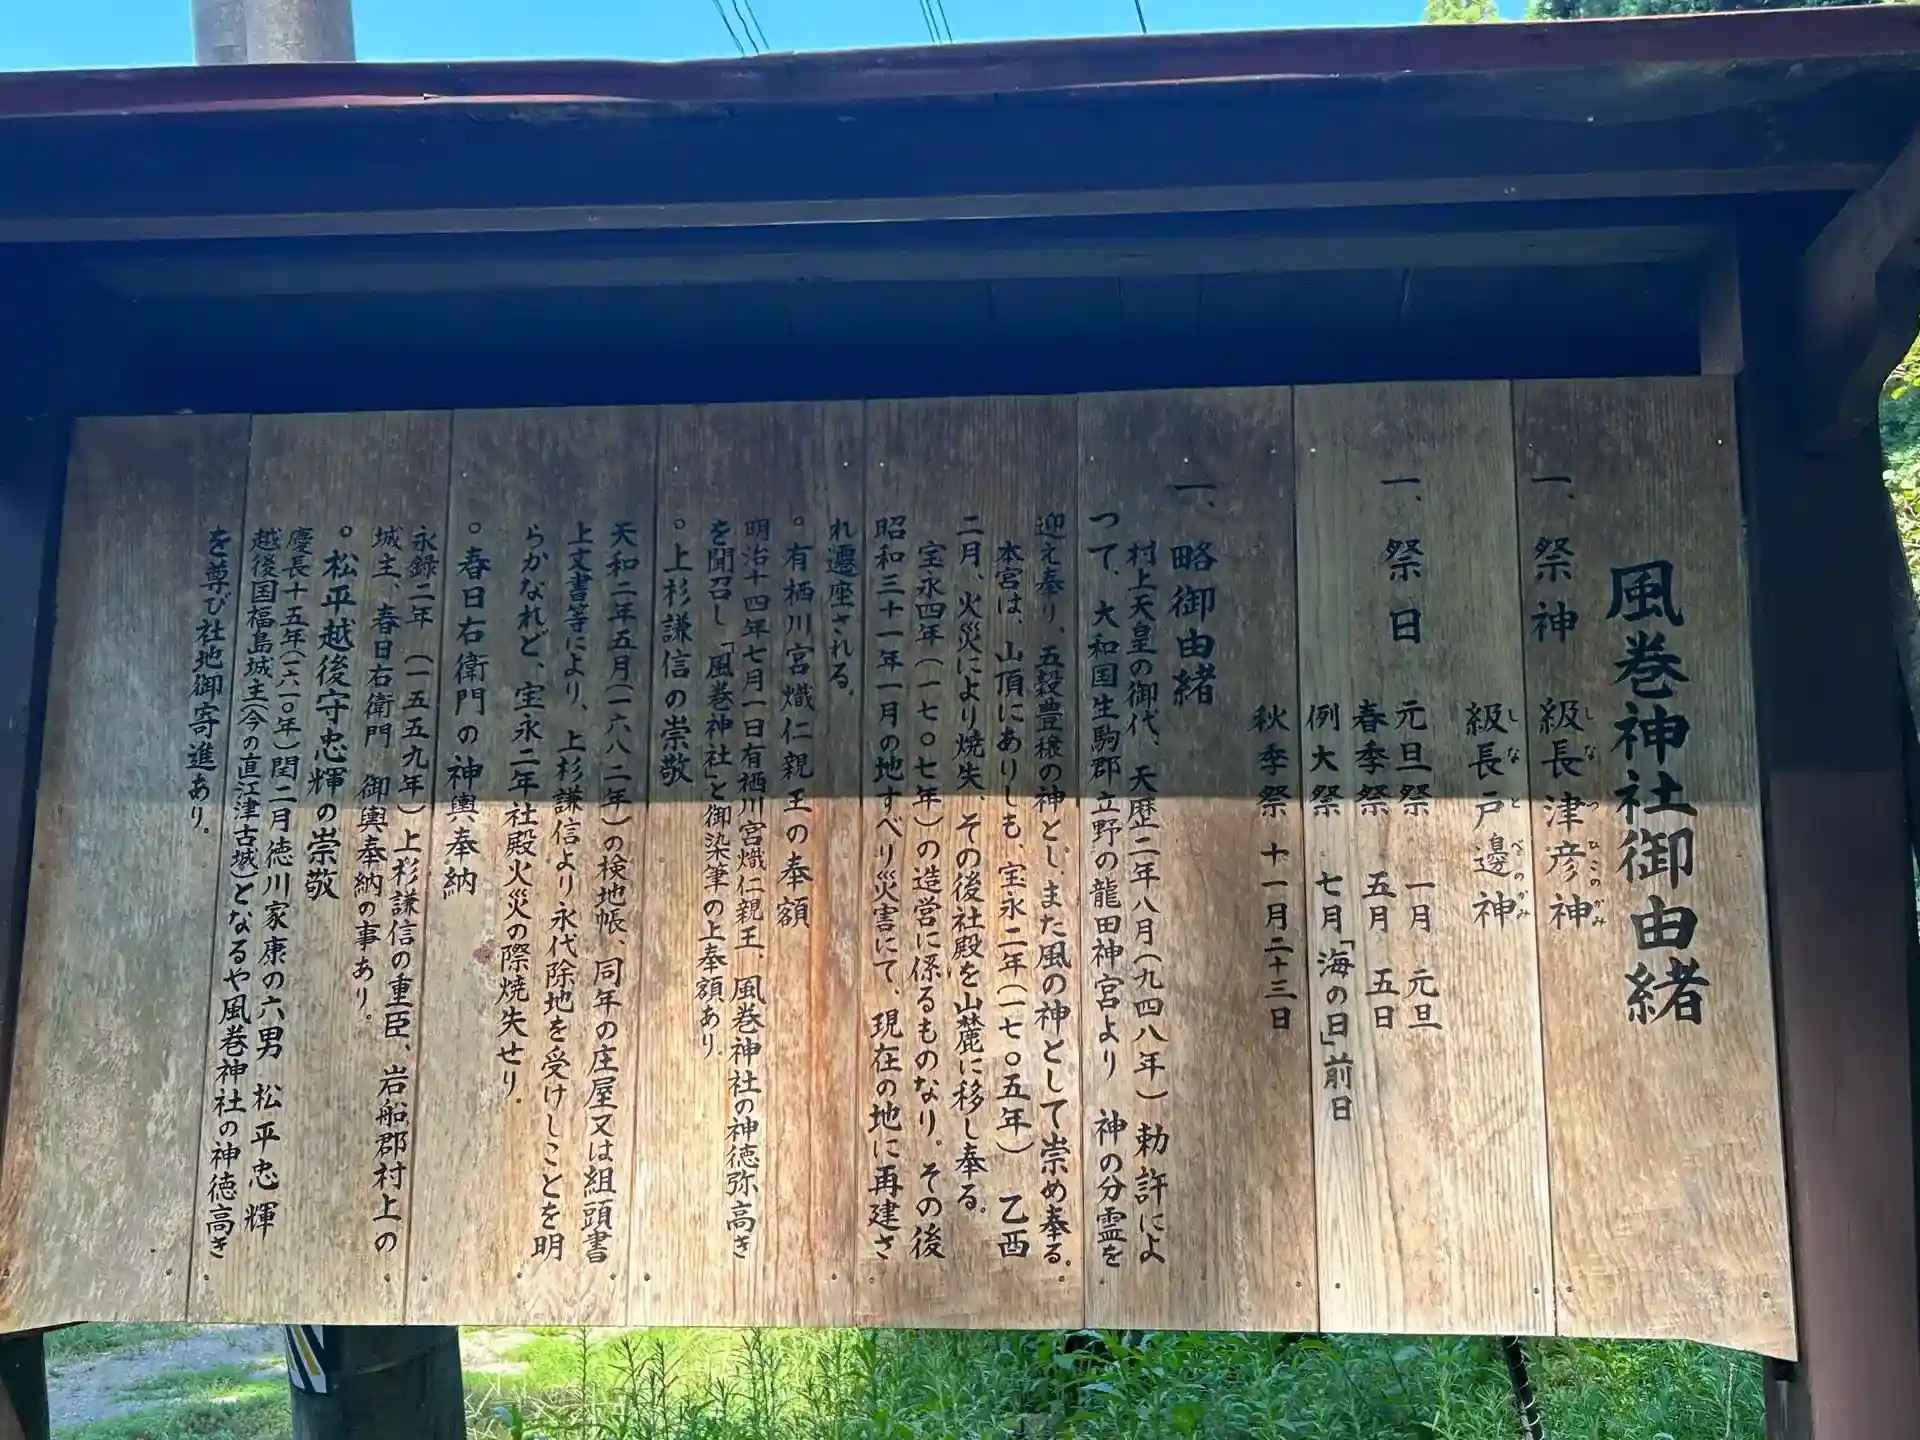 風巻神社御由緒
一、祭神 級長津彦神
しなつひこのかみ
級長戸邊神
しなとべのかみ
一、祭日 元旦祭 一月 元旦
春季祭 五月 五日
例大祭 七月「海の日」前日
秋季祭 十一月二十三日
一、略御由緒
村上天皇の御代、天歴二年八月(九四八年)勅許によ
つて、大和国生駒郡立野の龍田神宮より 神の分霊を
迎え奉り、五穀豊穣の神とし、また風の神として崇め奉る。
本宮は、山頂にありしも、宝永二年(一七〇五年)乙酉
二月、火災により焼失、その後社殿を山麓に移し奉る。
宝永四年(一七〇七年)の造営に係るものなり。その後
昭和三十一年一月の地すべり災害にて、現在の地に再建さ
れ遷座される。
。有栖川宮熾仁親王の奉額
明治十四年七月一日有栖川宮熾仁親王、風巻神社の神徳弥高き
を聞召し「風巻神社」と御染筆の上奉額あり。
。上杉謙信の崇敬
天和二年五月(一六八二年)の検地帳、同年の庄屋又は組頭書
上文書等により、上杉謙信より永代除地を受けしことを明
らかなれど、宝永二年社殿火災の際焼失せり。
。春日右衛門の神輿奉納
永録二年(一五五九年)上杉謙信の重臣、岩船郡村上の
城主、春日右衛門 御輿奉納の事あり。
。松平越後守忠輝の崇敬
慶長十五年(一六一〇年)閏二月徳川家康の六男 松平忠輝
越後国福島城主(今の直江津古城)となるや風巻神社の神徳高き
を尊び社地御寄進あり。